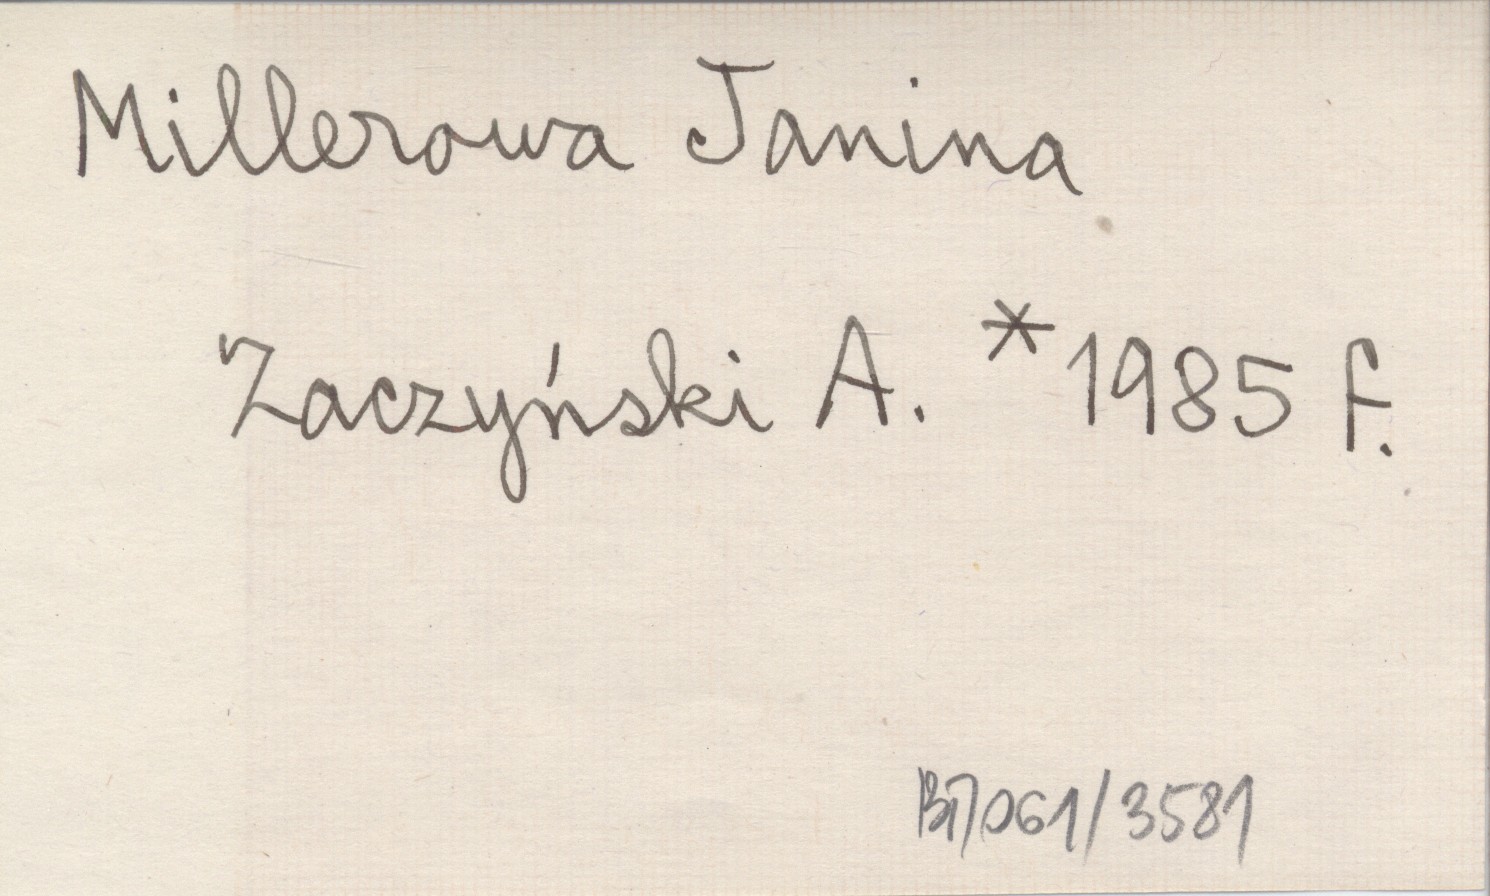 Millerowa Janina
Zaczyński A. * 1985 f.
061/3581